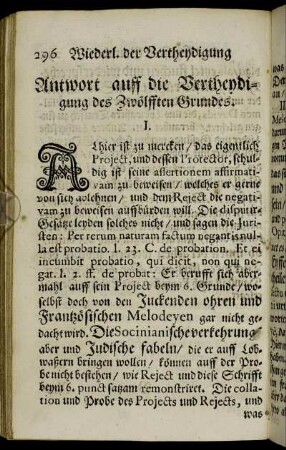 296 Wiederl. der Vertheydigung
Antwort auff die Vertheydi-
gung des Zwölfften Grundes.
I.
Alhier ist zu mercken / das eigentlich
Project, und dessen Protector, schul-
dig ist / seine assertionem affirmati-
vam zu beweisen / welches er gerne
von sich ablehnen / und dem Reject die negati-
vam zu beweisen auffbürden will. Die disputir-
Gesetze leyden solches nicht / und sagen die Jur-
isten: Per rerum naturam factum negantis nul-
la est probatio. l. 23. C. de probation. Et ei
incumbit probatio, qui dicit, non qui ne-
gat. l. 2. ff. de probat: Er berufft sich aber-
mahl auff sein Project beym 6. Grunde / wo-
selbst doch von den Juckenden ohren und
Frantzösischen Melodeyen gar nicht ge-
dacht wird. Die Socinianische verkehrung
aber und Jüdische fabeln / die er auff Lob-
wassern bringen wollen / können auff der Pro-
be nicht bestehen / wie Reject und diese Schrifft
beym 6. punct satzam remonstriret. Die colla-
tion und Probe des Projects und Rejects, und
was